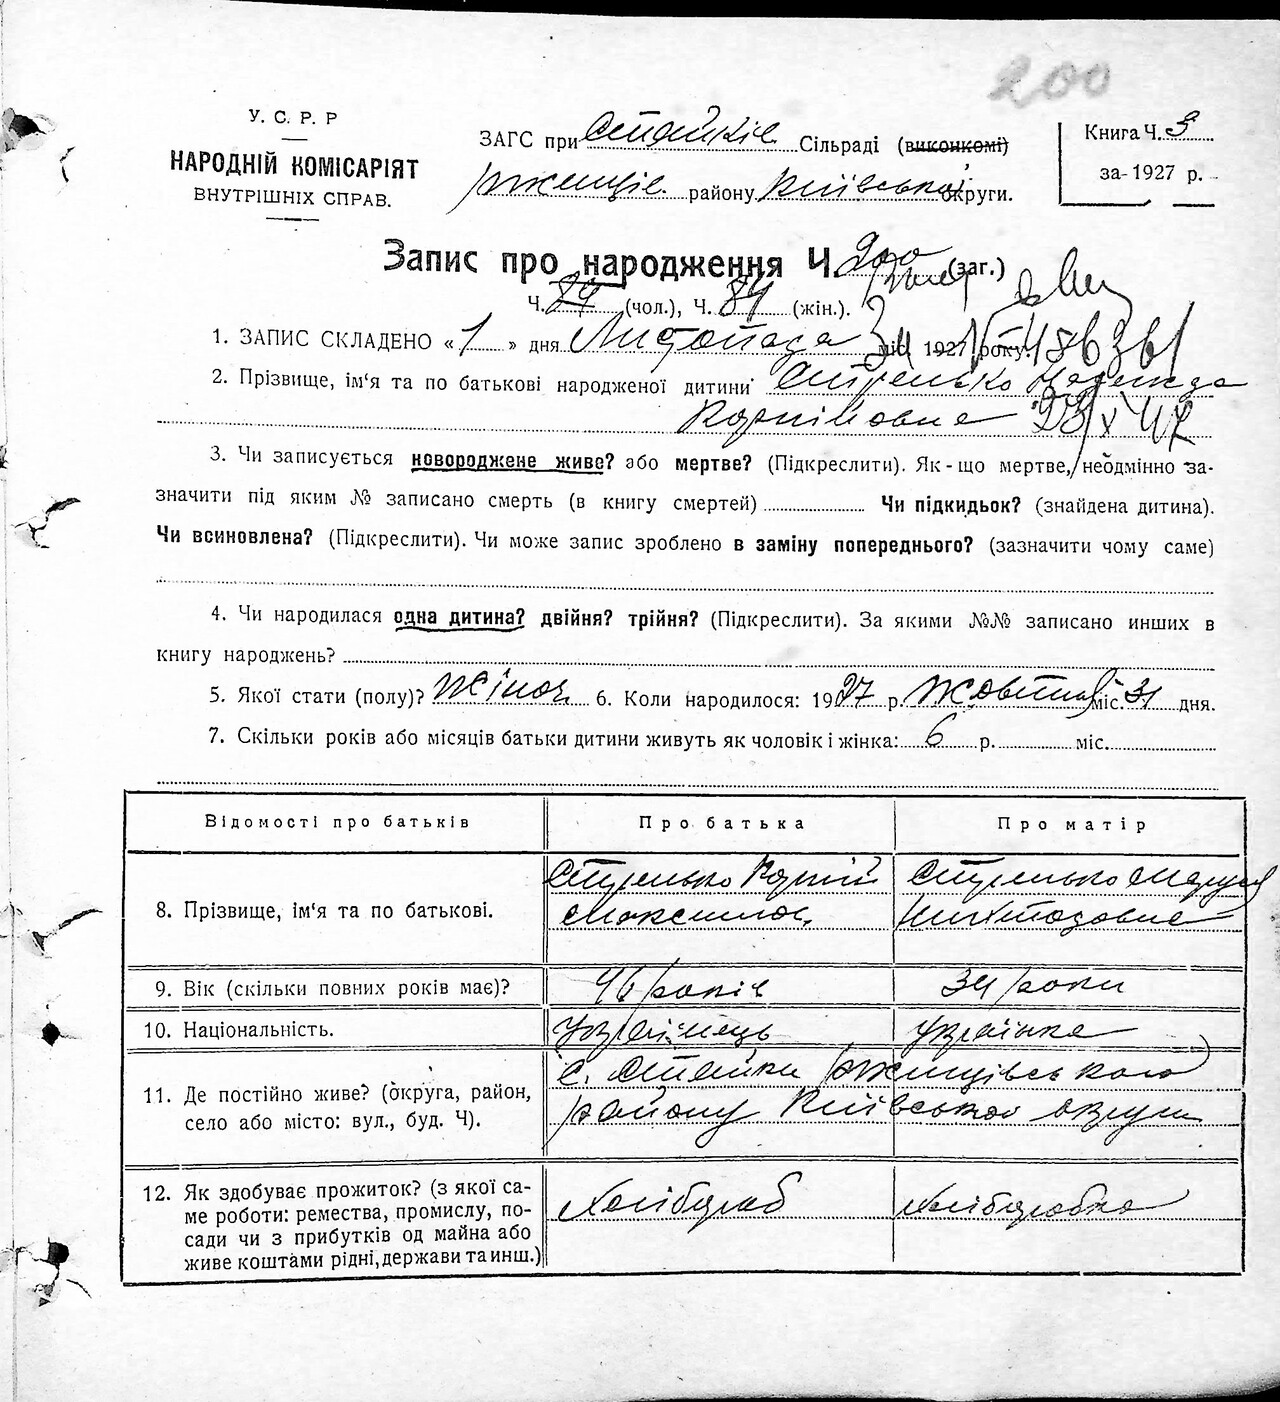 200
У. С. Р. Р
НАРОДНІЙ КОМІСАРІЯТ
ВНУТРІШНІХ СПРАВ.
ЗАГС при Стайків Сільраді (виконкомі)
Ржищів. району Київської округи.
Книга Ч. 3
за 1927 р.
Запис про народження Ч. 200 (заг.)
Ч. (чол.), Ч. 84 (жін.).
1. ЗАПИС СКЛАДЕНО «1» дня Листопада міс. 1927 року.
2. Прізвище, ім'я та по батькові народженої дитини Стрелько Надежда
Корніївна 23/X 47
3. Чи записується новороджене живе? або мертве? (Підкреслити). Як-що мертве, неодмінно за-
значити під яким № записано смерть (в книгу смертей) Чи підкидьок? (знайдена дитина).
Чи всиновлена? (Підкреслити). Чи може запис зроблено в заміну попереднього? (зазначити чому саме)
4. Чи народилася одна дитина? двійня? трійня? (Підкреслити). За якими №№ записано инших в
книгу народжень?
5. Якої стати (полу)? Жіноч. 6. Коли народилося: 1927 р. Жовтня міс. 31 дня.
7. Скільки років або місяців батьки дитини живуть як чоловік і жінка: 6 р. міс.
Відомості про батьків Про батька Про матір
8. Прізвище, ім'я та по батькові. Стрелько Корній Стрелько
Максимов.
9. Вік (скільки повних років має)? 46 років 34 роки
10. Національність. Українець Українка
11. Де постійно живе? (округа, район,
село або місто: вул., буд. Ч). с. Стайки Ржищівського
району Київської округи
12. Як здобуває прожиток? (з якої са-
ме роботи: ремества, промислу, по-
сади чи з прибутків од майна або
живе коштами рідні, держави та инш.)
Хлібороб Хліборобка